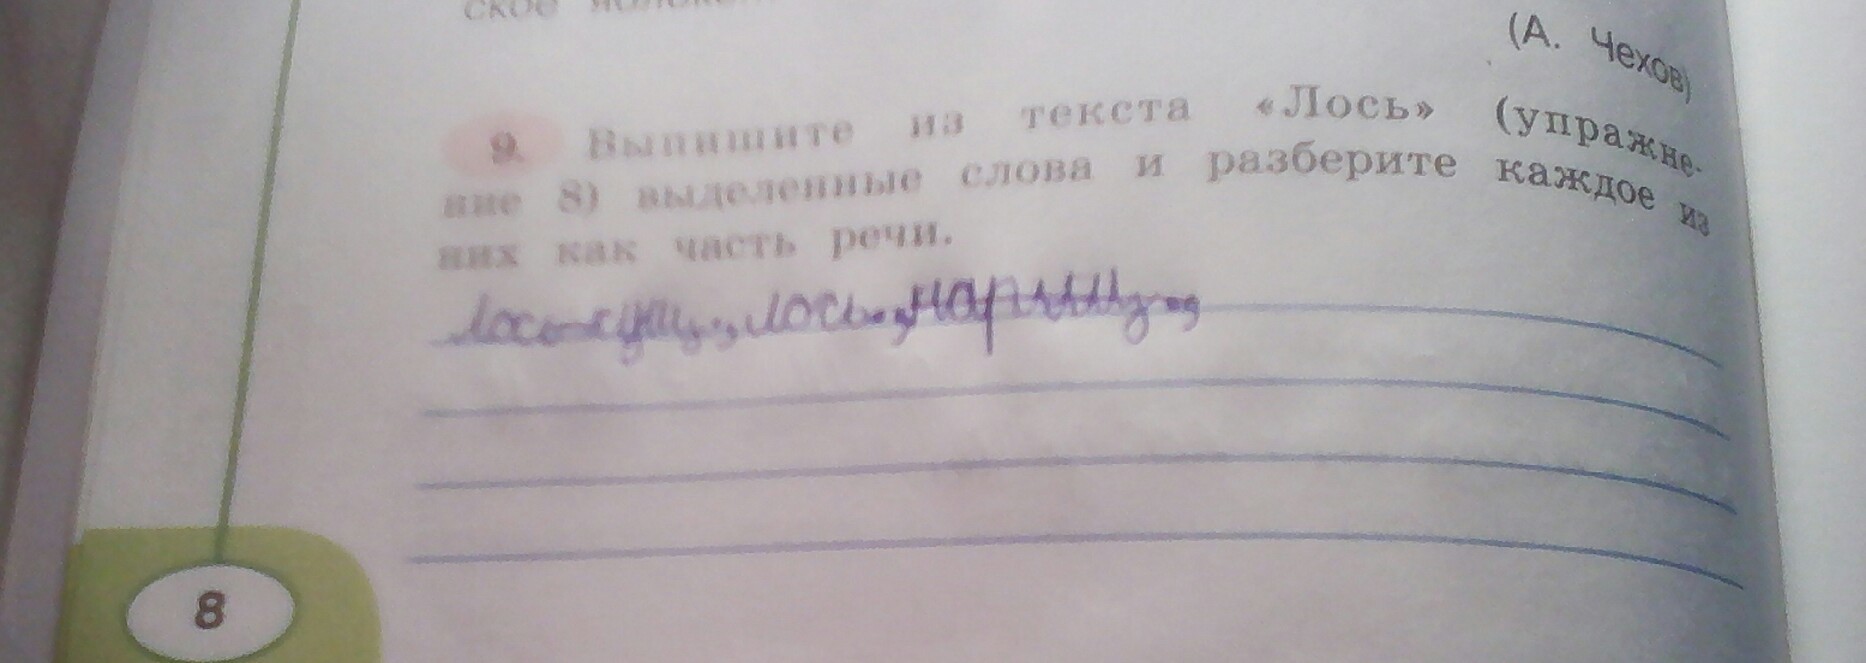 (А. Чехов)
9. Выпишите из текста «Лось» (упражне-
ние 8) выделенные слова и разберите каждое из
них как часть речи.
Лось-сущ.,
8